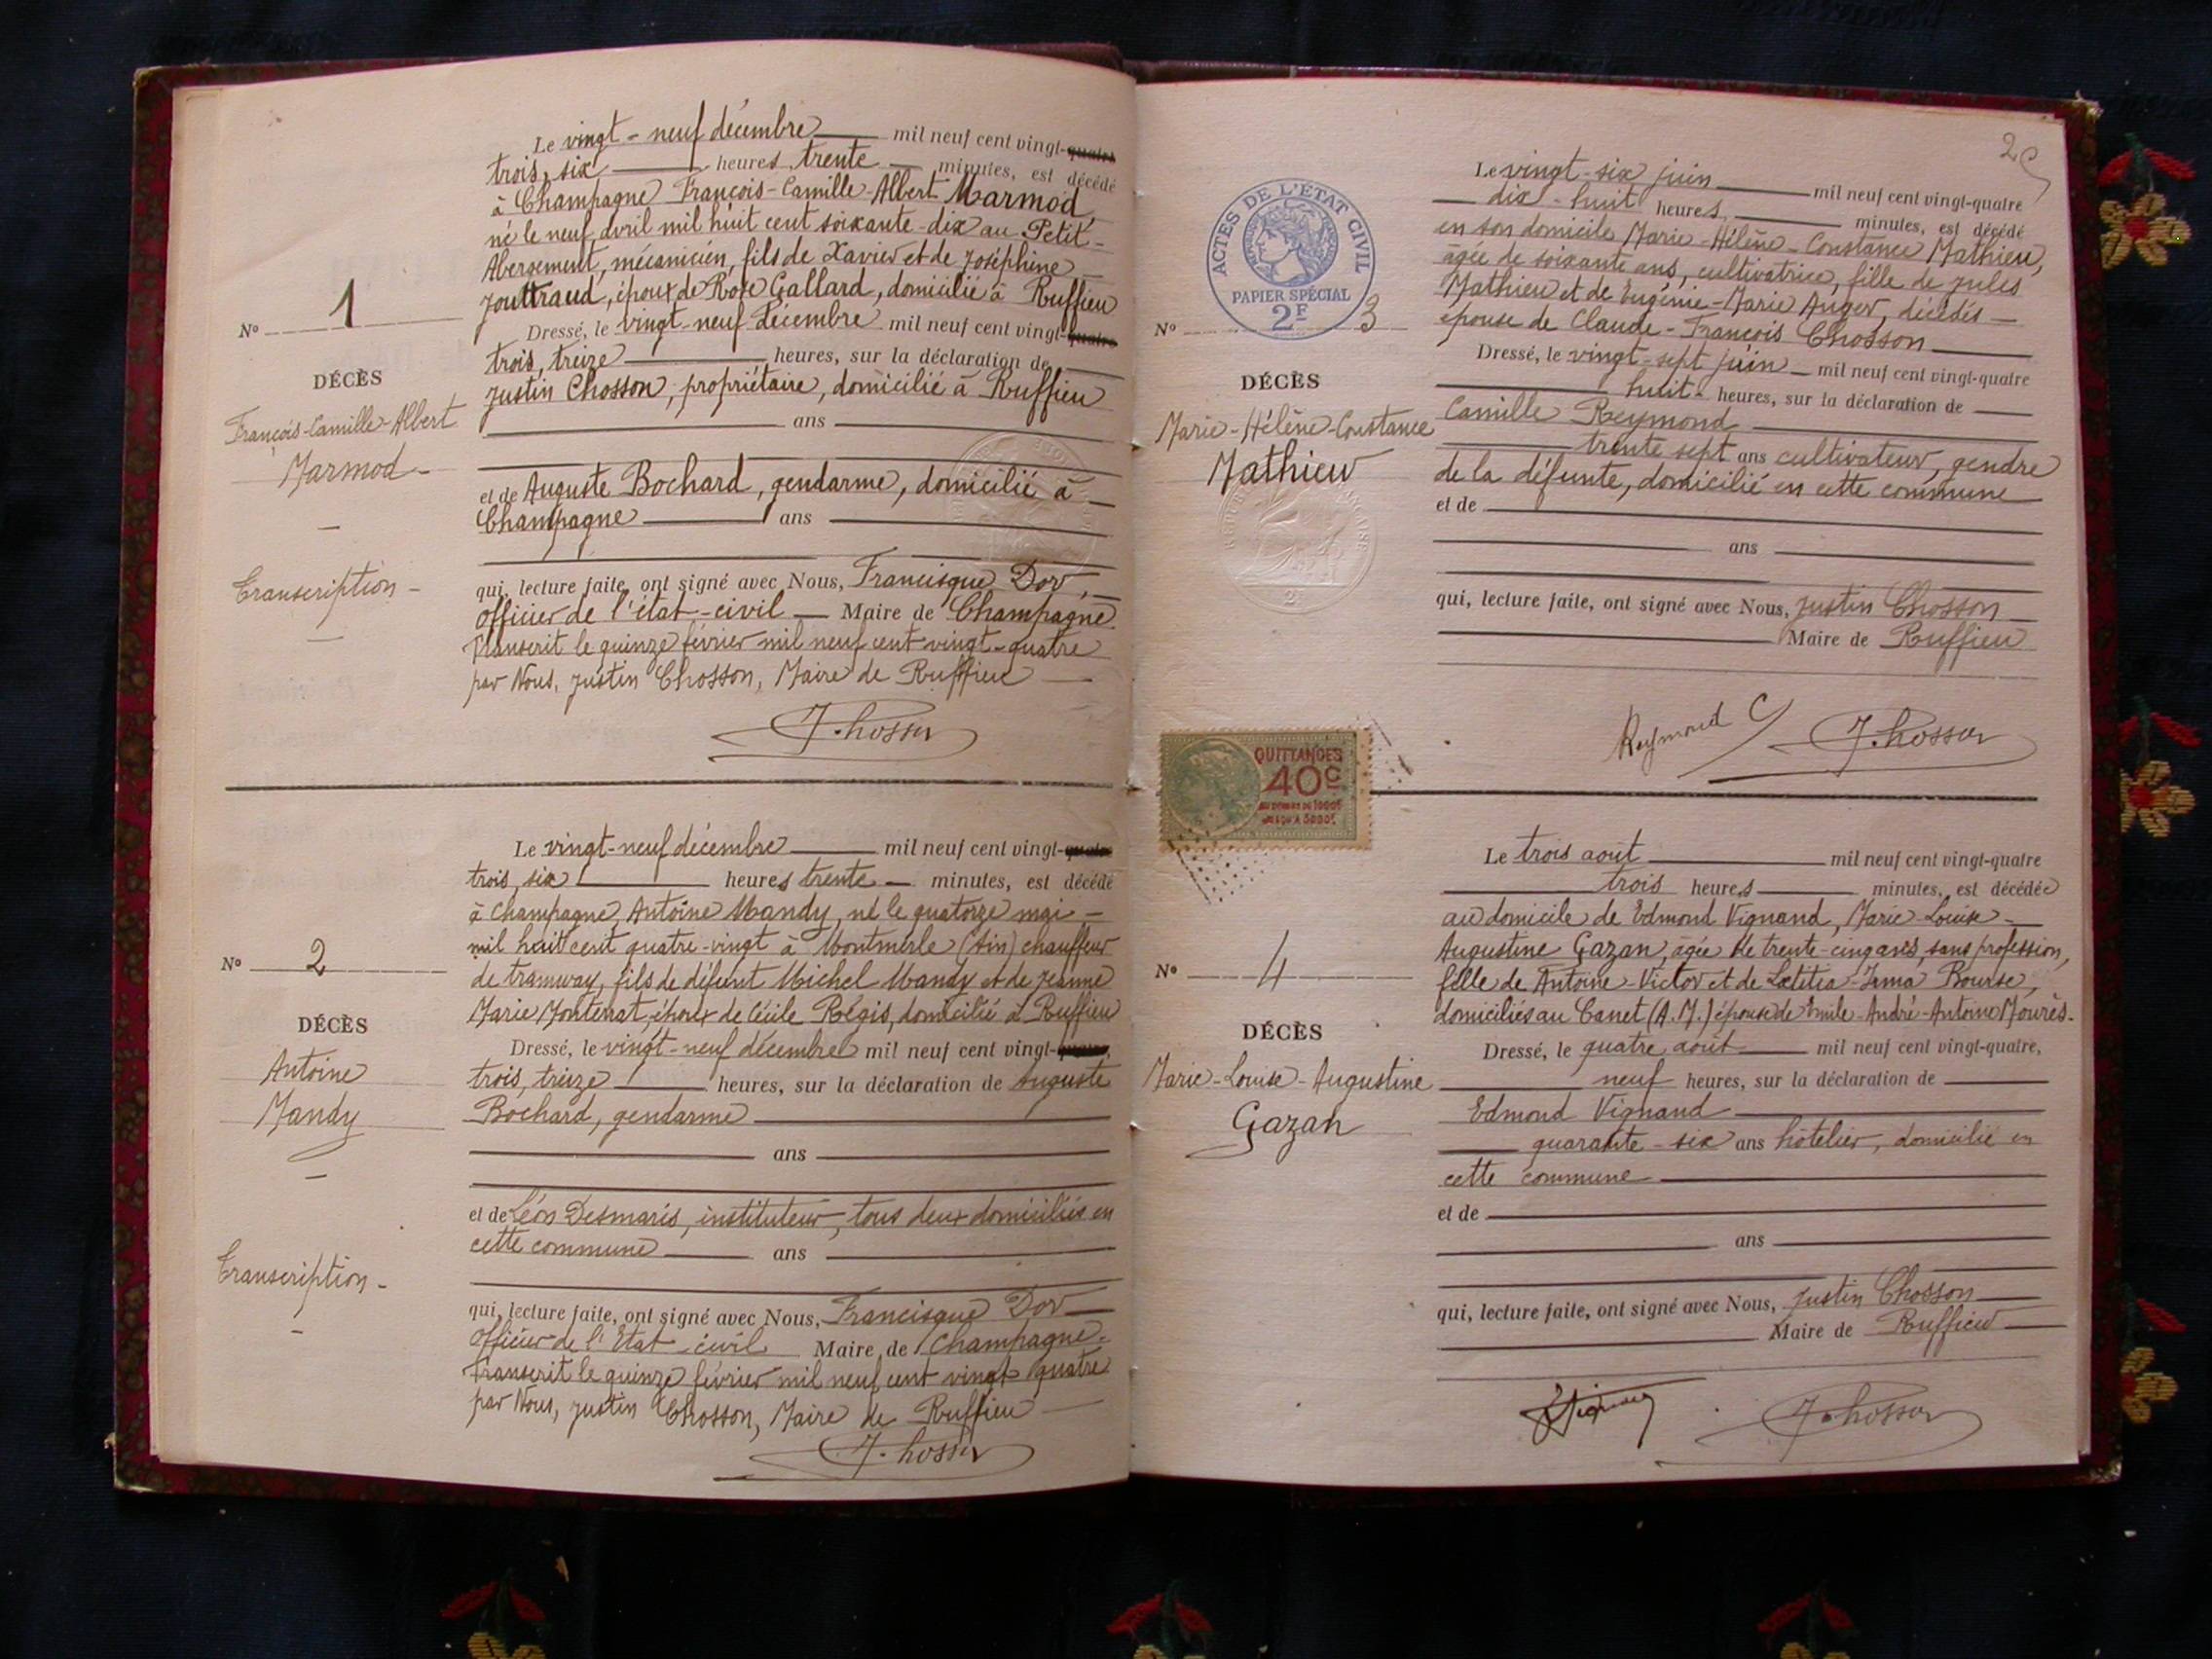 Le vingt-neuf décembre mil neuf cent vingt-quatre
trois, six heures trente minutes, est décédé
à Champagne François-Camille-Albert Marmod,
né le neuf avril mil huit cent soixante-dix au Petit-
Abergement, mécanicien, fils de Xavier et de Joséphine
Jouttraud, époux de Rose Gallard, domicilié à Ruffieu
Nº 1
Dressé, le vingt-neuf décembre mil neuf cent vingt-quatre
trois, treize heures, sur la déclaration de
DÉCÈS
Justin Chosson, propriétaire, domicilié à Ruffieu
François-Camille-Albert
ans
Marmod
et de Auguste Bochard, gendarme, domicilié à
Champagne ans
Transcription
qui, lecture faite, ont signé avec Nous, Francisque Dor,
officier de l'état-civil Maire de Champagne
Transcrit le quinze février mil neuf cent vingt-quatre
par Nous, Justin Chosson, Maire de Ruffieu
J. Chosson
Le vingt-neuf décembre mil neuf cent vingt-quatre
trois, six heures trente minutes, est décédé
à Champagne, Antoine Mandy, né le quatorze mai
mil huit cent quatre-vingt à Montmerle (Ain) chauffeur
Nº 2
de tramway, fils de défunt Michel Mandy et de Jeanne
Marie Montenat, époux de Cécile Régis, domicilié à Ruffieu
DÉCÈS
Dressé, le vingt-neuf décembre mil neuf cent vingt-quatre,
Antoine
trois, treize heures, sur la déclaration de Auguste
Mandy
Bochard, gendarme
ans
et de Léon Desmaris, instituteur, tous deux domiciliés en
cette commune ans
Transcription
qui, lecture faite, ont signé avec Nous, Francisque Dor
Officier de l'Etat civil Maire de Champagne.
Transcrit le quinze février mil neuf cent vingt quatre
par Nous, Justin Chosson, Maire de Ruffieu
J. Chosson
2
ACTES DE L'ÉTAT CIVIL
PAPIER SPÉCIAL
2F
Le vingt-six juin mil neuf cent vingt-quatre
dix-huit heures, minutes, est décédé
en son domicile Marie-Hélène-Constance Mathieu,
âgée de soixante ans, cultivatrice, fille de Jules
Mathieu et de Eugénie-Marie Auger, décédés
épouse de Claude-François Chosson
Nº 3
Dressé, le vingt-sept juin mil neuf cent vingt-quatre
DÉCÈS
huit heures, sur la déclaration de
Marie-Hélène-Constance
Camille Reymond
Mathieu
trente sept ans cultivateur, gendre
de la défunte, domicilié en cette commune
et de
ans
qui, lecture faite, ont signé avec Nous, Justin Chosson
Maire de Ruffieu
Reymond C
J. Chosson
QUITTANCES
40c
Le trois août mil neuf cent vingt-quatre
trois heures minutes, est décédée
au domicile de Edmond Vignand, Marie-Louise-
Augustine Gazan, âgée de trente-cinq ans, sans profession,
Nº 4
fille de Antoine-Victor et de Lœtitia-Irma Bourse,
domiciliés au Canet (A. M.) épouse de Emile-André-Antoine Mourès.
DÉCÈS
Dressé, le quatre août mil neuf cent vingt-quatre,
Marie-Louise-Augustine
neuf heures, sur la déclaration de
Gazan
Edmond Vignand
quarante-six ans hôtelier, domicilié en
cette commune
et de
ans
qui, lecture faite, ont signé avec Nous, Justin Chosson
Maire de Ruffieu
J. Chosson